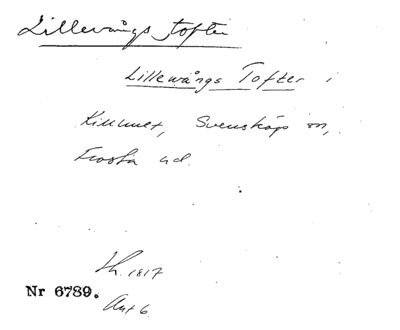 Lillevångs tofter
Lillewångs Tofter i
Killhult, Svensköps sn,
Frosta hd.
Lh. 1817
Nr 6789.
Akt 6.